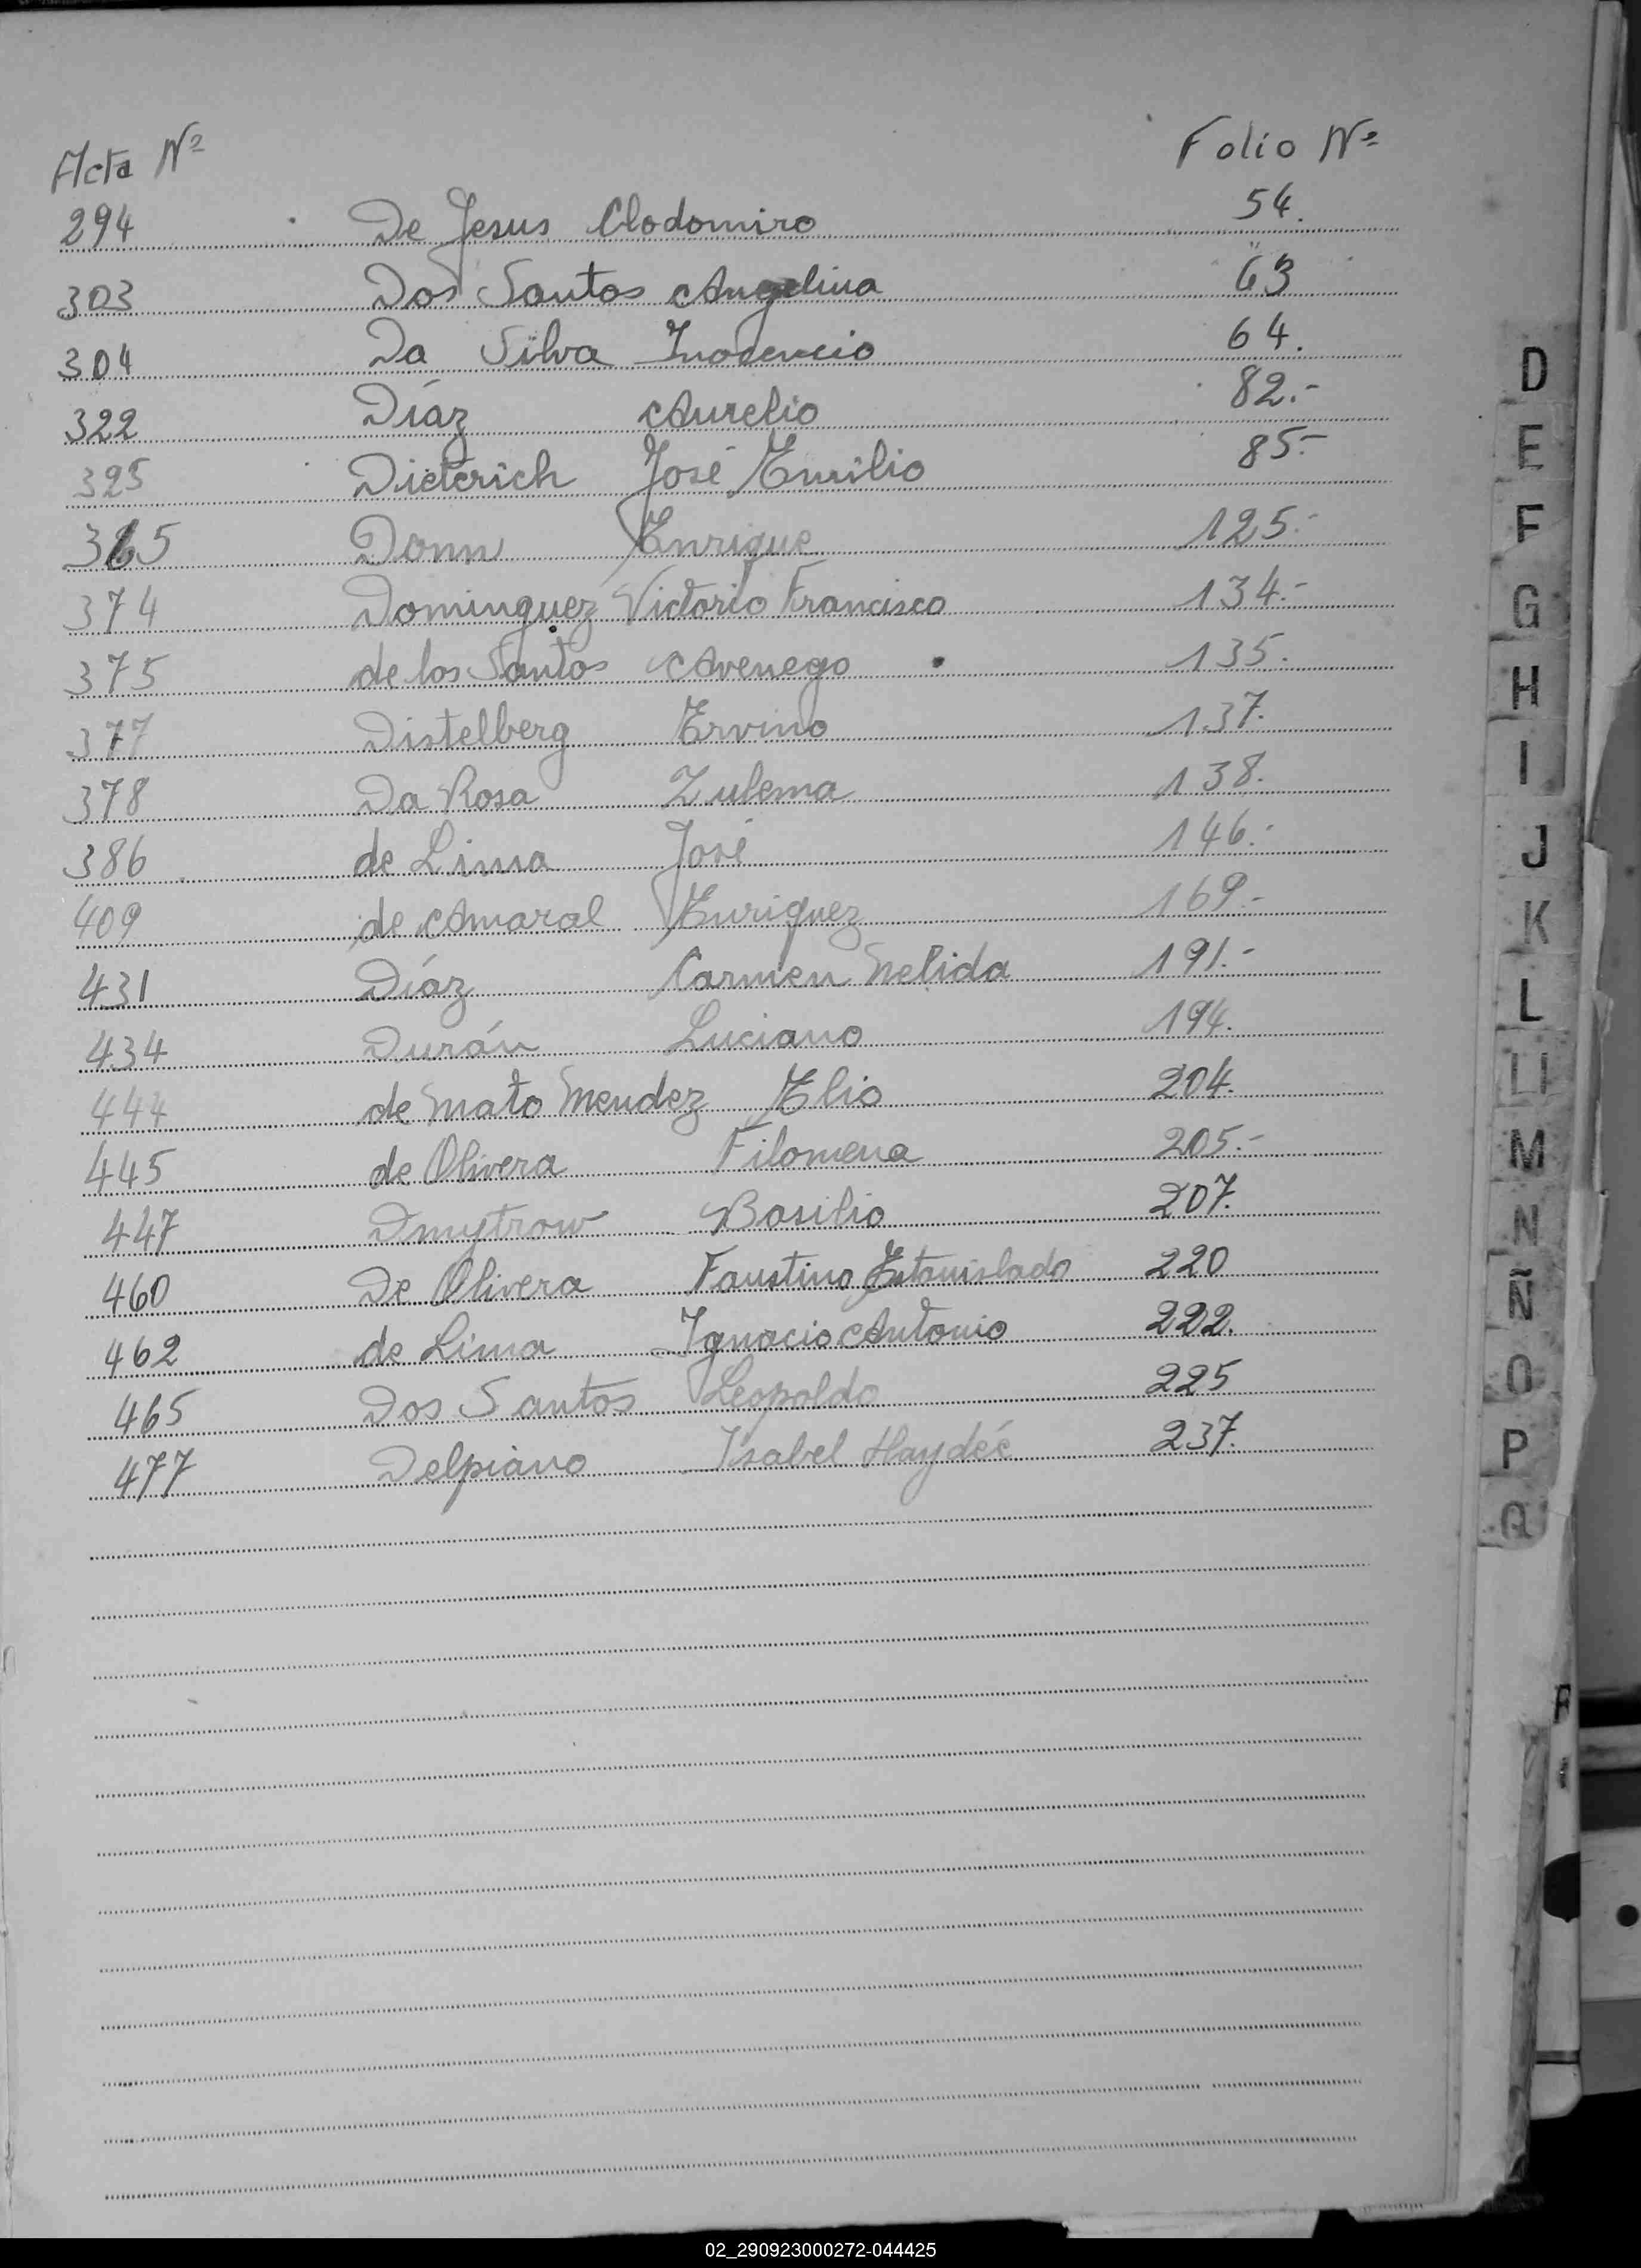 Acta Nº Folio Nº
294 De Jesus Clodomiro 54.
303 Dos Santos Angelina 63
304 Da Silva Inocencio 64.
322 Díaz Aurelio 82.-
325 Dieterich José Emilio 85.-
365 Donn Enrique 125.-
374 Dominguez Victorio Francisco 134.-
375 de los Santos Avenego 135.
377 Distelberg Ervino 137.
378 Da Rosa Zulema 138.
386 de Lima José 146.-
409 de Amaral Enriquez 169.-
431 Díaz Carmen Nelida 191.-
434 Durán Luciano 194.
444 de Mato Mendez Elio 204.
445 de Olivera Filomena 205.-
447 Dmytrow Basilio 207.
460 De Olivera Faustino Estanislado 220
462 de Lima Ignacio Antonio 222.
465 Dos Santos Leopoldo 225
477 Delpiano Isabel Haydeé 237.
D
E
F
G
H
I
J
K
L
LL
M
N
Ñ
O
P
Q
02_290923000272-044425